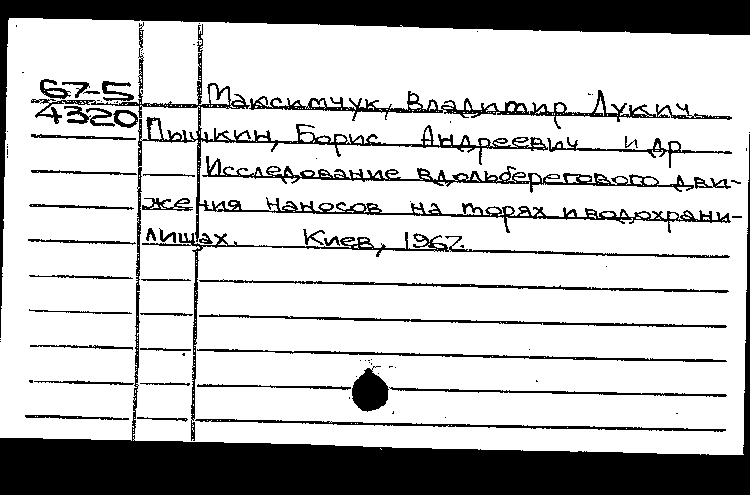 67-5
4320
Максимчук, Владимир Лукич.
Пышкин, Борис Андреевич и др
Исследование вдольберегового дви-
жения наносов на морях и водохрани-
лищах. Киев, 1967.